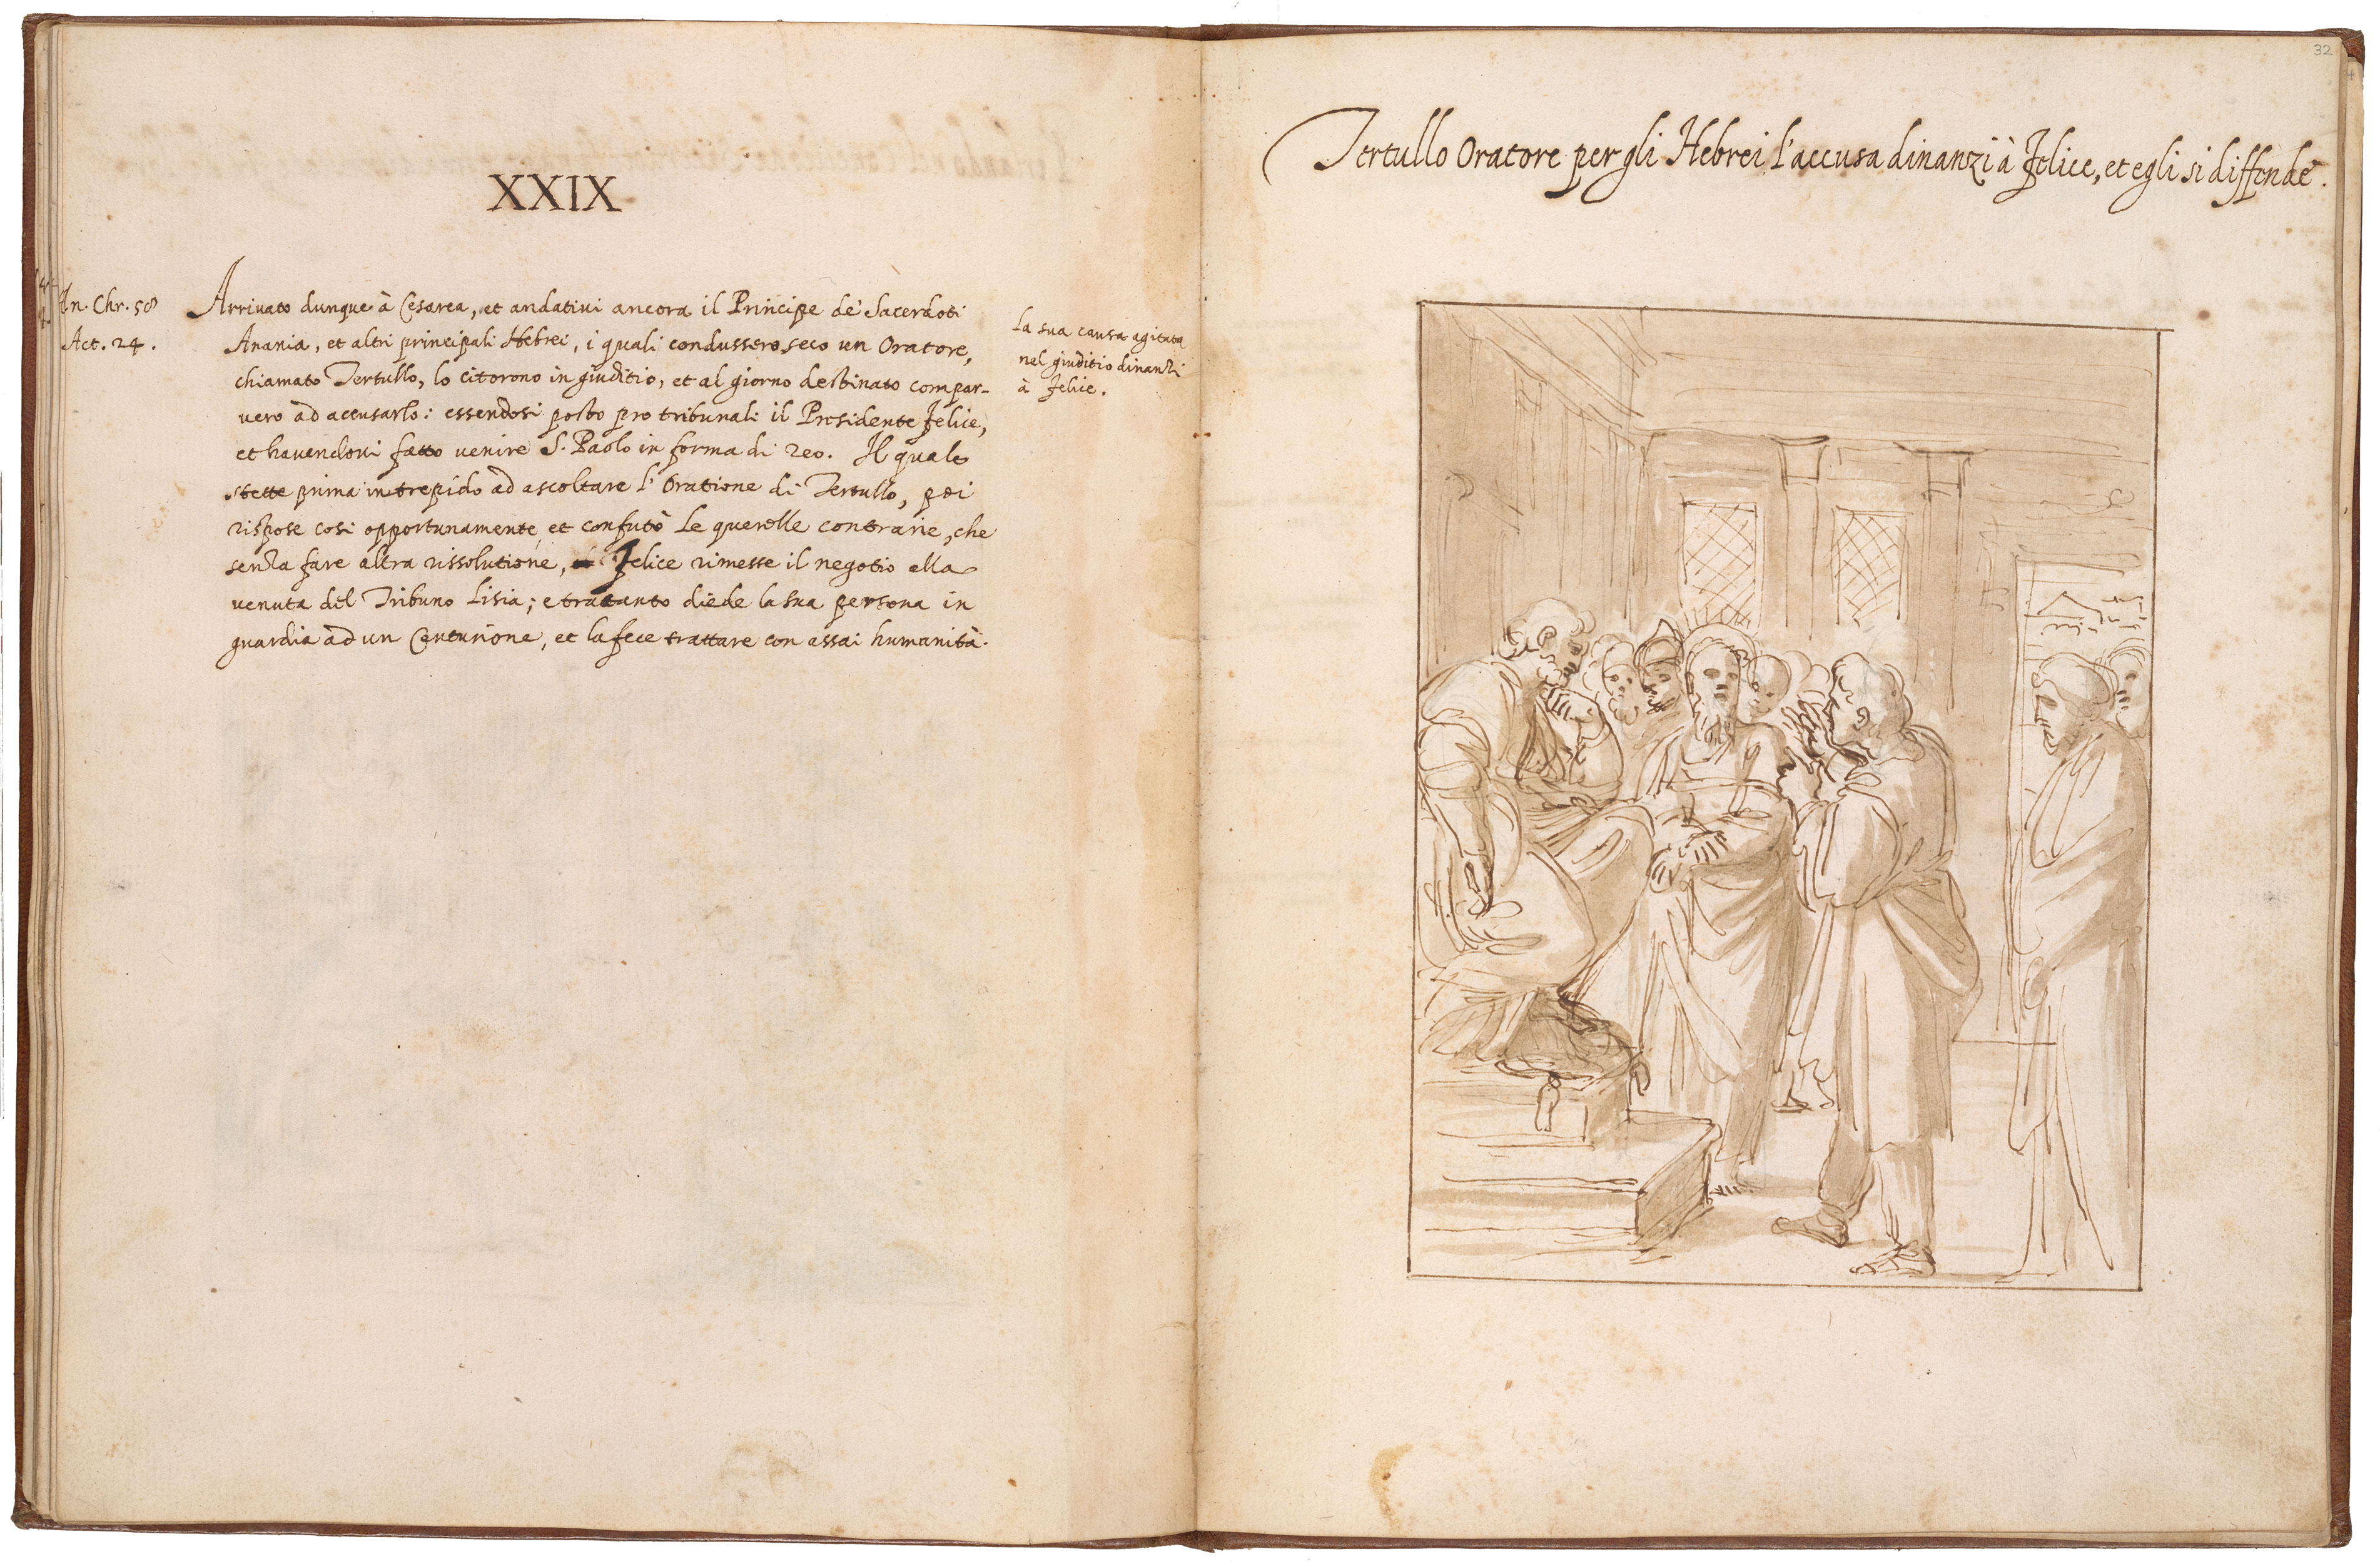 XXIX
An. Chr. 58
Act. 24.
Arrivato dunque à Cesarea, et andativi ancora il Principe de' Sacerdoti
Anania, et altri principali Hebrei, i quali condussero seco un Oratore,
chiamato Tertullo, lo citorono in giuditio, et al giorno destinato compar-
vero ad accusarlo: essendosi posto pro tribunali il Presidente Felice,
et havendovi fatto venire S. Paolo in forma di reo. Il quale
stette prima intrepido ad ascoltare l'Oratione di Tertullo, poi
rispose cosi opportunamente, et confutò le querelle contrarie, che
senza fare altra rissolutione, Felice rimesse il negotio alla
venuta del Tribuno Lisia; e tratanto diede la sua persona in
guardia ad un Centurione, et la fece trattare con assai humanità.
La sua causa agitata
nel giuditio dinanzi
à Felice.
32
Tertullo Oratore per gli Hebrei l'accusa dinanzi à Felice, et egli si diffende.